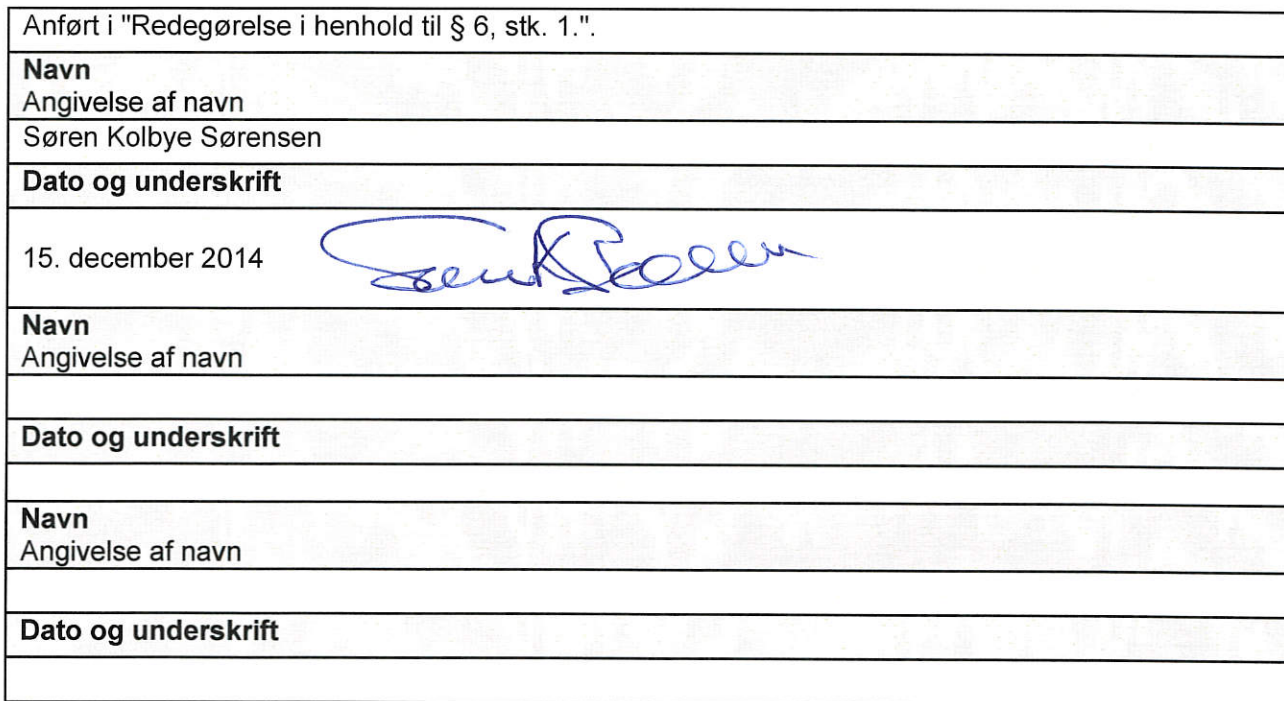 Anført i "Redegørelse i henhold til § 6, stk. 1.".
Navn
Angivelse af navn
Søren Kolbye Sørensen
Dato og underskrift
15. december 2014
Navn
Angivelse af navn
Dato og underskrift
Navn
Angivelse af navn
Dato og underskrift